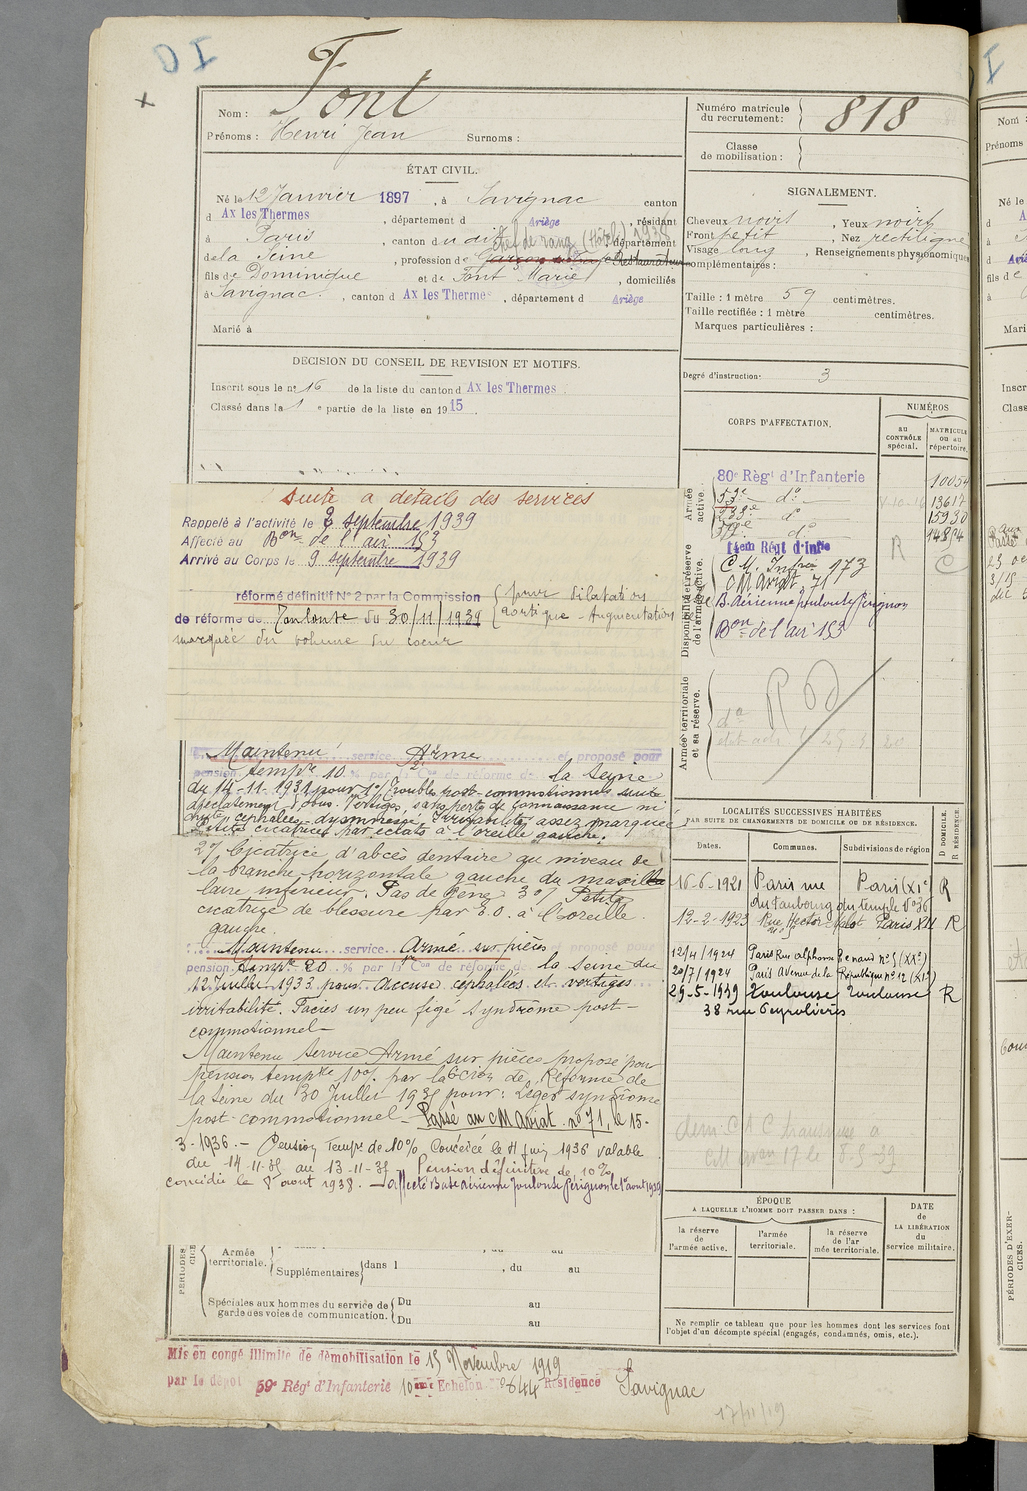 DI
Font
Nom :
Prénoms : Henri Jean Surnoms :
Numéro matricule du recrutement : 818
Classe de mobilisation :
ÉTAT CIVIL.
Né le 12 Janvier 1897, à Savignac canton
d Ax les Thermes, département d Ariège, résidant
à Paris, canton d u dit département
de la Seine, profession de Chef de rang (Hôtels) 1938 Restaurateur
fils de Dominique et de Font Marie, domiciliés
à Savignac, canton d Ax les Thermes, département d Ariège
Marié à
SIGNALEMENT.
Cheveux noirs, Yeux noirs
Front petit, Nez rectiligne
Visage long, Renseignements physionomiques
complémentaires :
Taille : 1 mètre 59 centimètres.
Taille rectifiée : 1 mètre centimètres.
Marques particulières :
DECISION DU CONSEIL DE REVISION ET MOTIFS.
Inscrit sous le n° 16 de la liste du canton d Ax les Thermes.
Classé dans la 1 e partie de la liste en 1915.
Degré d'instruction: 3
CORPS D'AFFECTATION.
NUMÉROS
au CONTRÔLE spécial.
MATRICULE ou au répertoire.
Armée active.
80e Régt d'Infanterie 10054
53e d° 13617
233e d° 15930
59e d° 14854
Disponibilité et réserve de l'armée active.
14em Régt d'Infie
C M. Infie 173
C M Aviat. 71
B. Aérienne Toulouse Pérignon
Bon de l'air 153
R
C
Armée territoriale et sa réserve.
d°
RD
suite a détails des services
Rappelé à l'activité le 2 septembre 1939
Affecté au Bon de l'air 153
Arrivé au Corps le 9 septembre 1939
réformé définitif N° 2 par la Commission
de réforme de Toulouse du 30/11/1939
pour dilatation
aortique - Augmentation
marquée du volume du coeur
Maintenu service Armé et proposé pour
pension tempre 10 % par la 2e Con de réforme de la Seine
du 14-11-1931 pour 1°/ Troubles post-commotionnels suite
d'éclatement d'obus. Vertiges, sans perte de connaissance ni
chute, céphalées, dysmnésie, Irritabilité assez marquée
Petites cicatrices par éclats à l'oreille gauche.
2°/ Cicatrice d'abcès dentaire au niveau de
la branche horizontale gauche du maxil
laire inférieur. Pas de gêne 3°/ Petite
cicatrice de blessure par E.O. à l'oreille
gauche.
Maintenu service Armé sur pièces et proposé pour
pension tempre 20 % par la 1re Con de réforme de la Seine du
12 juillet 1933 pour Accuse céphalées et vertiges
irritabilité. Faciès un peu figé Syndrome post-
commotionnel
Maintenu Service Armé sur pièces proposé pour
pension tempre 10% par la 6e Cion de Réforme de
la Seine du 30 Juillet 1935 pour : Léger syndrome
post-commotionnel - Passé au CM Aviat. n° 71, le 15-
3-1936. - Pension Tempre de 10% Concédée le 11 juin 1936 valable
du 14-11-35 au 13-11-37 Pension définitive de 10%
concédée le 8 août 1938. affecté Base Aérienne Toulouse Pérignon le 1er août 1939
LOCALITÉS SUCCESSIVES HABITÉES
PAR SUITE DE CHANGEMENTS DE DOMICILE OU DE RÉSIDENCE.
Dates. Communes. Subdivisions de région D DOMICILE. R RÉSIDENCE
16-6-1921 Paris rue Paris (XIe) R
du faubourg du temple N° 36
12-2-1923 Rue Hector Paris XII R
12/4/1924 Paris Rue Alphonse Penaud n° 5 (XXe)
20/7/1924 Paris Avenue de la République n° 12 (XIe)
29-5-1939 Toulouse Toulouse R
38 rue Peyrolières
ÉPOQUE
A LAQUELLE L'HOMME DOIT PASSER DANS :
la réserve de l'armée active.
l'armée territoriale.
la réserve de l'armée territoriale.
DATE de LA LIBÉRATION du service militaire.
Ne remplir ce tableau que pour les hommes dont les services font
l'objet d'un décompte spécial (engagés, condamnés, omis, etc.).
PÉRIODES
Armée territoriale.
Supplémentaires dans l , du au
Spéciales aux hommes du service de garde des voies de communication.
Du au
Du au
Mis en congé illimité de démobilisation le 15 Novembre 1919
par le dépôt 59e Régt d'Infanterie 10eme Echelon N° 644 Résidence Savignac
17/11/19